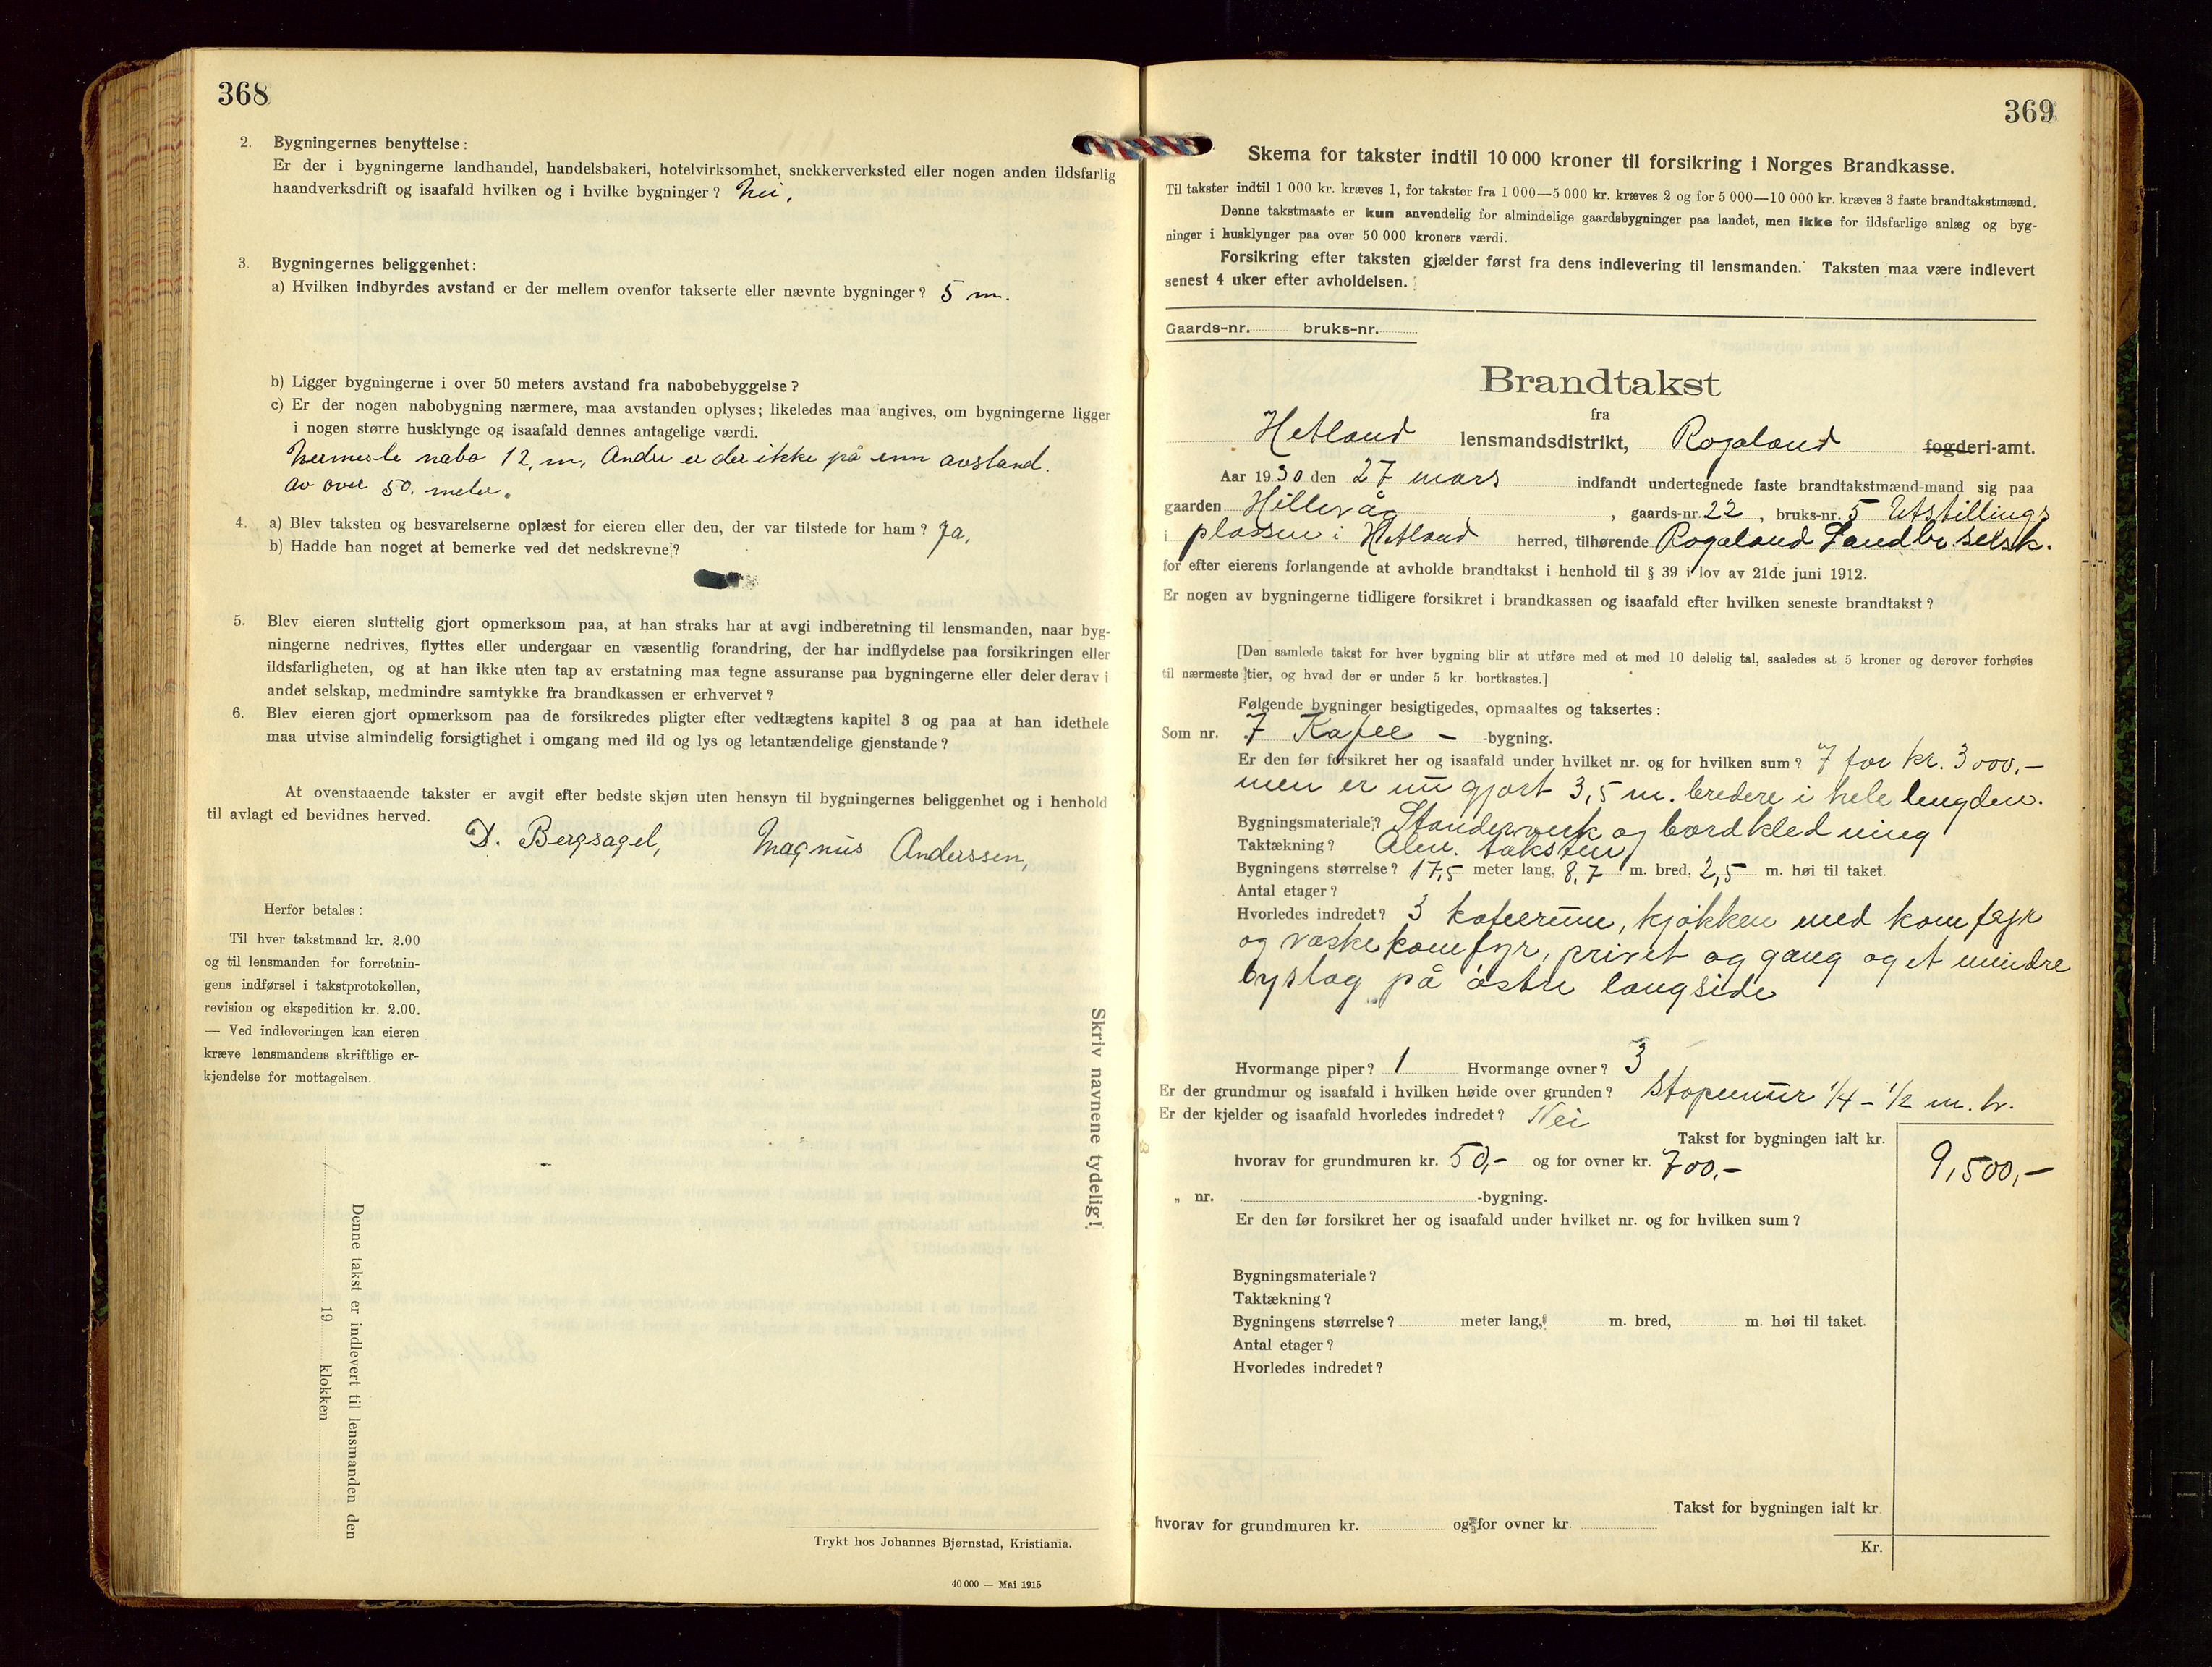 368
2. Bygningernes benyttelse:
Er der i bygningerne landhandel, handelsbakeri, hotelvirksomhet, snekkerverksted eller nogen anden ildsfarlig
haandverksdrift og isaafald hvilken og i hvilke bygninger? Nei.
3. Bygningernes beliggenhet:
a) Hvilken indbyrdes avstand er der mellem ovenfor takserte eller nævnte bygninger? 5 m.
b) Ligger bygningerne i over 50 meters avstand fra nabobebyggelse?
c) Er der nogen nabobygning nærmere, maa avstanden oplyses; likeledes maa angives, om bygningerne ligger
i nogen større husklynge og isaafald dennes antagelige værdi.
Nermeste nabo 12, m, Andre er der ikke på enn avstand.
av over 50. meter.
4. a) Blev taksten og besvarelserne oplæst for eieren eller den, der var tilstede for ham? Ja,
b) Hadde han noget at bemerke ved det nedskrevne?
5. Blev eieren sluttelig gjort opmerksom paa, at han straks har at avgi indberetning til lensmanden, naar byg-
ningerne nedrives, flyttes eller undergaar en væsentlig forandring, der har indflydelse paa forsikringen eller
ildsfarligheten, og at han ikke uten tap av erstatning maa tegne assuranse paa bygningerne eller deler derav i
andet selskap, medmindre samtykke fra brandkassen er erhvervet?
6. Blev eieren gjort opmerksom paa de forsikredes pligter efter vedtægtens kapitel 3 og paa at han idethele
maa utvise almindelig forsigtighet i omgang med ild og lys og letantændelige gjenstande?
At ovenstaaende takster er avgit efter bedste skjøn uten hensyn til bygningernes beliggenhet og i henhold
til avlagt ed bevidnes herved.
D. Bergsagel, Magnus Anderssen,
Herfor betales:
Til hver takstmand kr. 2.00
og til lensmanden for forretnin-
gens indførsel i takstprotokollen,
revision og ekspedition kr. 2.00.
— Ved indleveringen kan eieren
kræve lensmandens skriftlige er-
kjendelse for mottagelsen.
Skriv navnene tydelig!
Denne takst er indlevert til lensmanden den
19 klokken
Trykt hos Johannes Bjørnstad, Kristiania.
40 000 — Mai 1915
369
Skema for takster indtil 10 000 kroner til forsikring i Norges Brandkasse.
Til takster indtil 1 000 kr. kræves 1, for takster fra 1 000—5 000 kr. kræves 2 og for 5 000—10 000 kr. kræves 3 faste brandtakstmænd.
Denne takstmaate er kun anvendelig for almindelige gaardsbygninger paa landet, men ikke for ildsfarlige anlæg og byg-
ninger i husklynger paa over 50 000 kroners værdi.
Forsikring efter taksten gjælder først fra dens indlevering til lensmanden. Taksten maa være indlevert
senest 4 uker efter avholdelsen.
Gaards-nr. bruks-nr.
Brandtakst
fra
Hetland lensmandsdistrikt, Rogaland fogderi-amt.
Aar 1930 den 27 mars indfandt undertegnede faste brandtakstmænd-mand sig paa
gaarden Hillevåg, gaards-nr. 22, bruks-nr. 5 Utstillings
i plassen i Hetland herred, tilhørende Rogaland Landbr. selsk.
for efter eierens forlangende at avholde brandtakst i henhold til § 39 i lov av 21de juni 1912.
Er nogen av bygningerne tidligere forsikret i brandkassen og isaafald efter hvilken seneste brandtakst?
[Den samlede takst for hver bygning blir at utføre med et med 10 delelig tal, saaledes at 5 kroner og derover forhøies
til nærmeste tier, og hvad der er under 5 kr. bortkastes.]
Følgende bygninger besigtigedes, opmaaltes og taksertes:
Som nr. 7 Kafee - -bygning.
Er den før forsikret her og isaafald under hvilket nr. og for hvilken sum? 7 for kr. 3000,-
men er nu gjort 3,5 m. bredere i hele lengden.
Bygningsmateriale? Standerverk og bordkledning
Taktækning? Alm. taksten
Bygningens størrelse? 17,5 meter lang, 8,7 m. bred, 2,5 m. høi til taket.
Antal etager?
Hvorledes indredet? 3 kafeerum, kjøkken med komfyr
og vaskekomfyr, privet og gang og et mindre
byslag på østre langside
Hvormange piper? 1 Hvormange ovner? 3
Er der grundmur og isaafald i hvilken høide over grunden? Støpemur 1/4 - 1/2 m. h.
Er der kjelder og isaafald hvorledes indredet? Nei
Takst for bygningen ialt kr.
hvorav for grundmuren kr. 50,- og for ovner kr. 700,- 9,500,-
„ nr. -bygning.
Er den før forsikret her og isaafald under hvilket nr. og for hvilken sum?
Bygningsmateriale?
Taktækning?
Bygningens størrelse? meter lang, m. bred, m. høi til taket.
Antal etager?
Hvorledes indredet?
Takst for bygningen ialt kr
hvorav for grundmuren kr. og for ovner kr.
Kr.